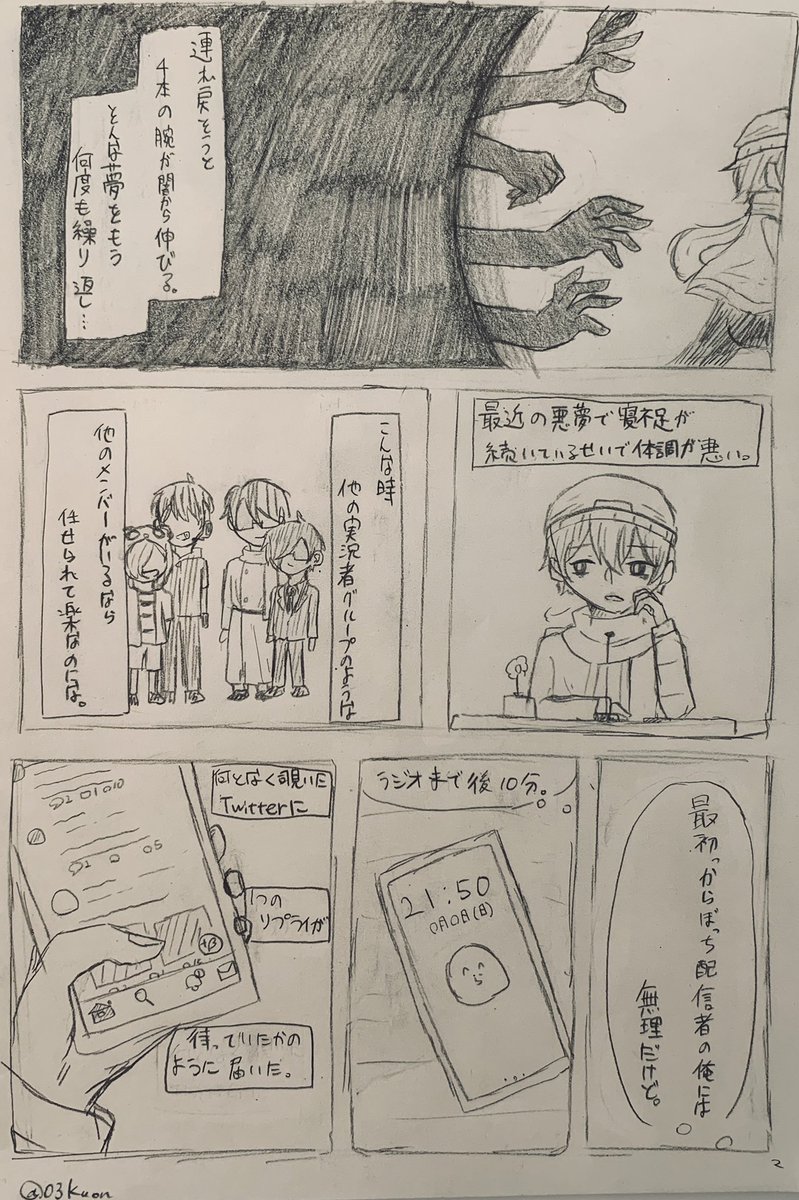 連れ戻そうと
4本の腕が闇から伸びる。
そんな夢をもう
何度も繰り返し…
最近の悪夢で寝不足が
続いているせいで体調が悪い。
こんな時
他の実況者グループのような
他のメンバーがいるなら
任せられて楽なのにな。
最初っからぼっち配信者の俺には
無理だけど。
ラジオまで後10分。
21:50
0月0日(日)
何となく覗いた
Twitterに
1つの
リプライが
待っていたかの
ように届いた。
2
@03Kuon